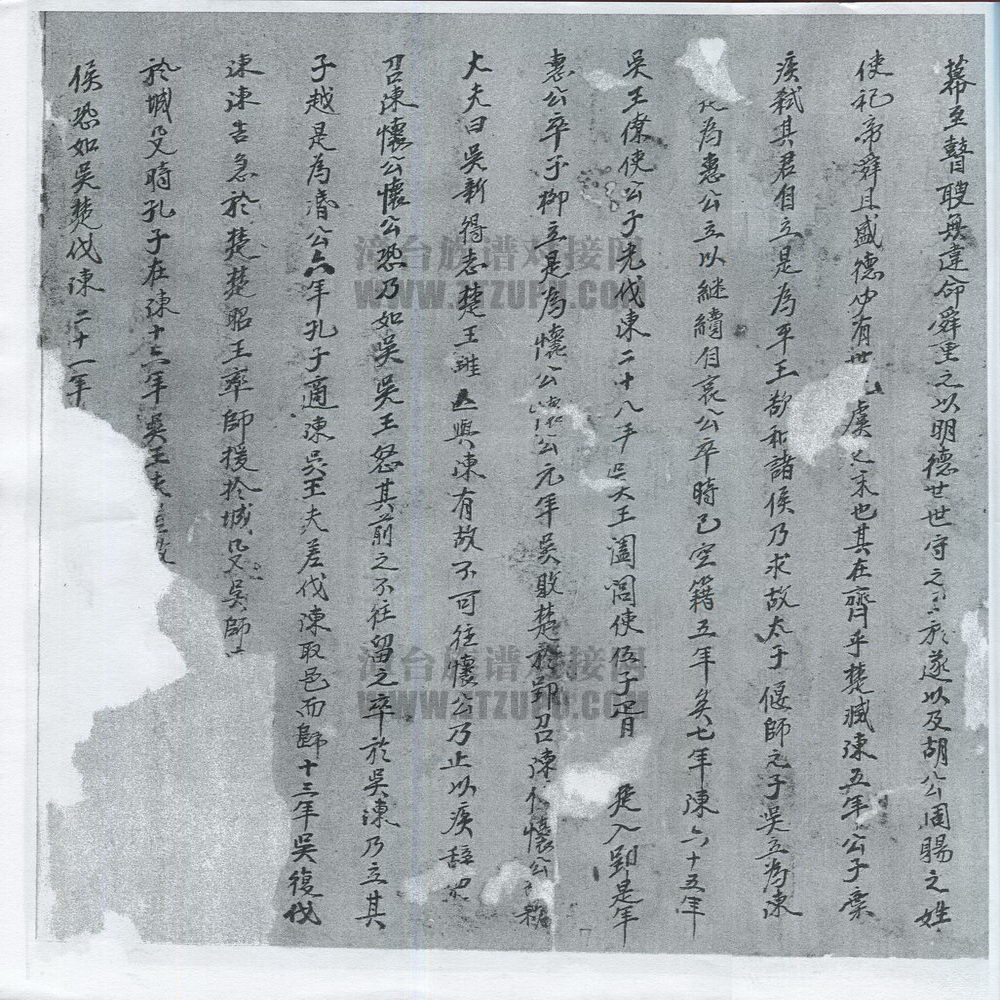 幕至瞽瞍無違命舜重之以明德世世守之 遂以及胡公周賜之姓
使祀帝舜且盛德 有世 虞之末也其在齊乎楚滅陳五年公子棄
疾弒其君自立是為平王欲和諸侯乃求故太子偃師之子吳立為陳
為惠公立以継續自哀公卒時已空籍五年矣七年陳六十五年
吳王僚使公子光伐陳二十八年吳大王闔閭使伍子胥 楚入郢是年
惠公卒子柳立是為懷公 公元年吳敗楚於郢召陳 懷公
大夫曰吳新得志楚王雖亡與陳有故不可往懷公乃止以疾辞
召陳懷公懷公恐乃如吳吳王怒其前之不往留之卒於吳陳乃立其
子越是為湣公六年孔子適陳吳王夫差伐陳取邑而歸十三年吳復伐
陳陳告急於楚楚昭王率師援於城父吳師
於城父時孔子在陳十六年吳王夫
侯恐如吳楚伐陳二十一年
漳台族谱对接网
WWW.ZTZUPU.COM
漳台族谱对接网
WWW.ZTZUPU.COM